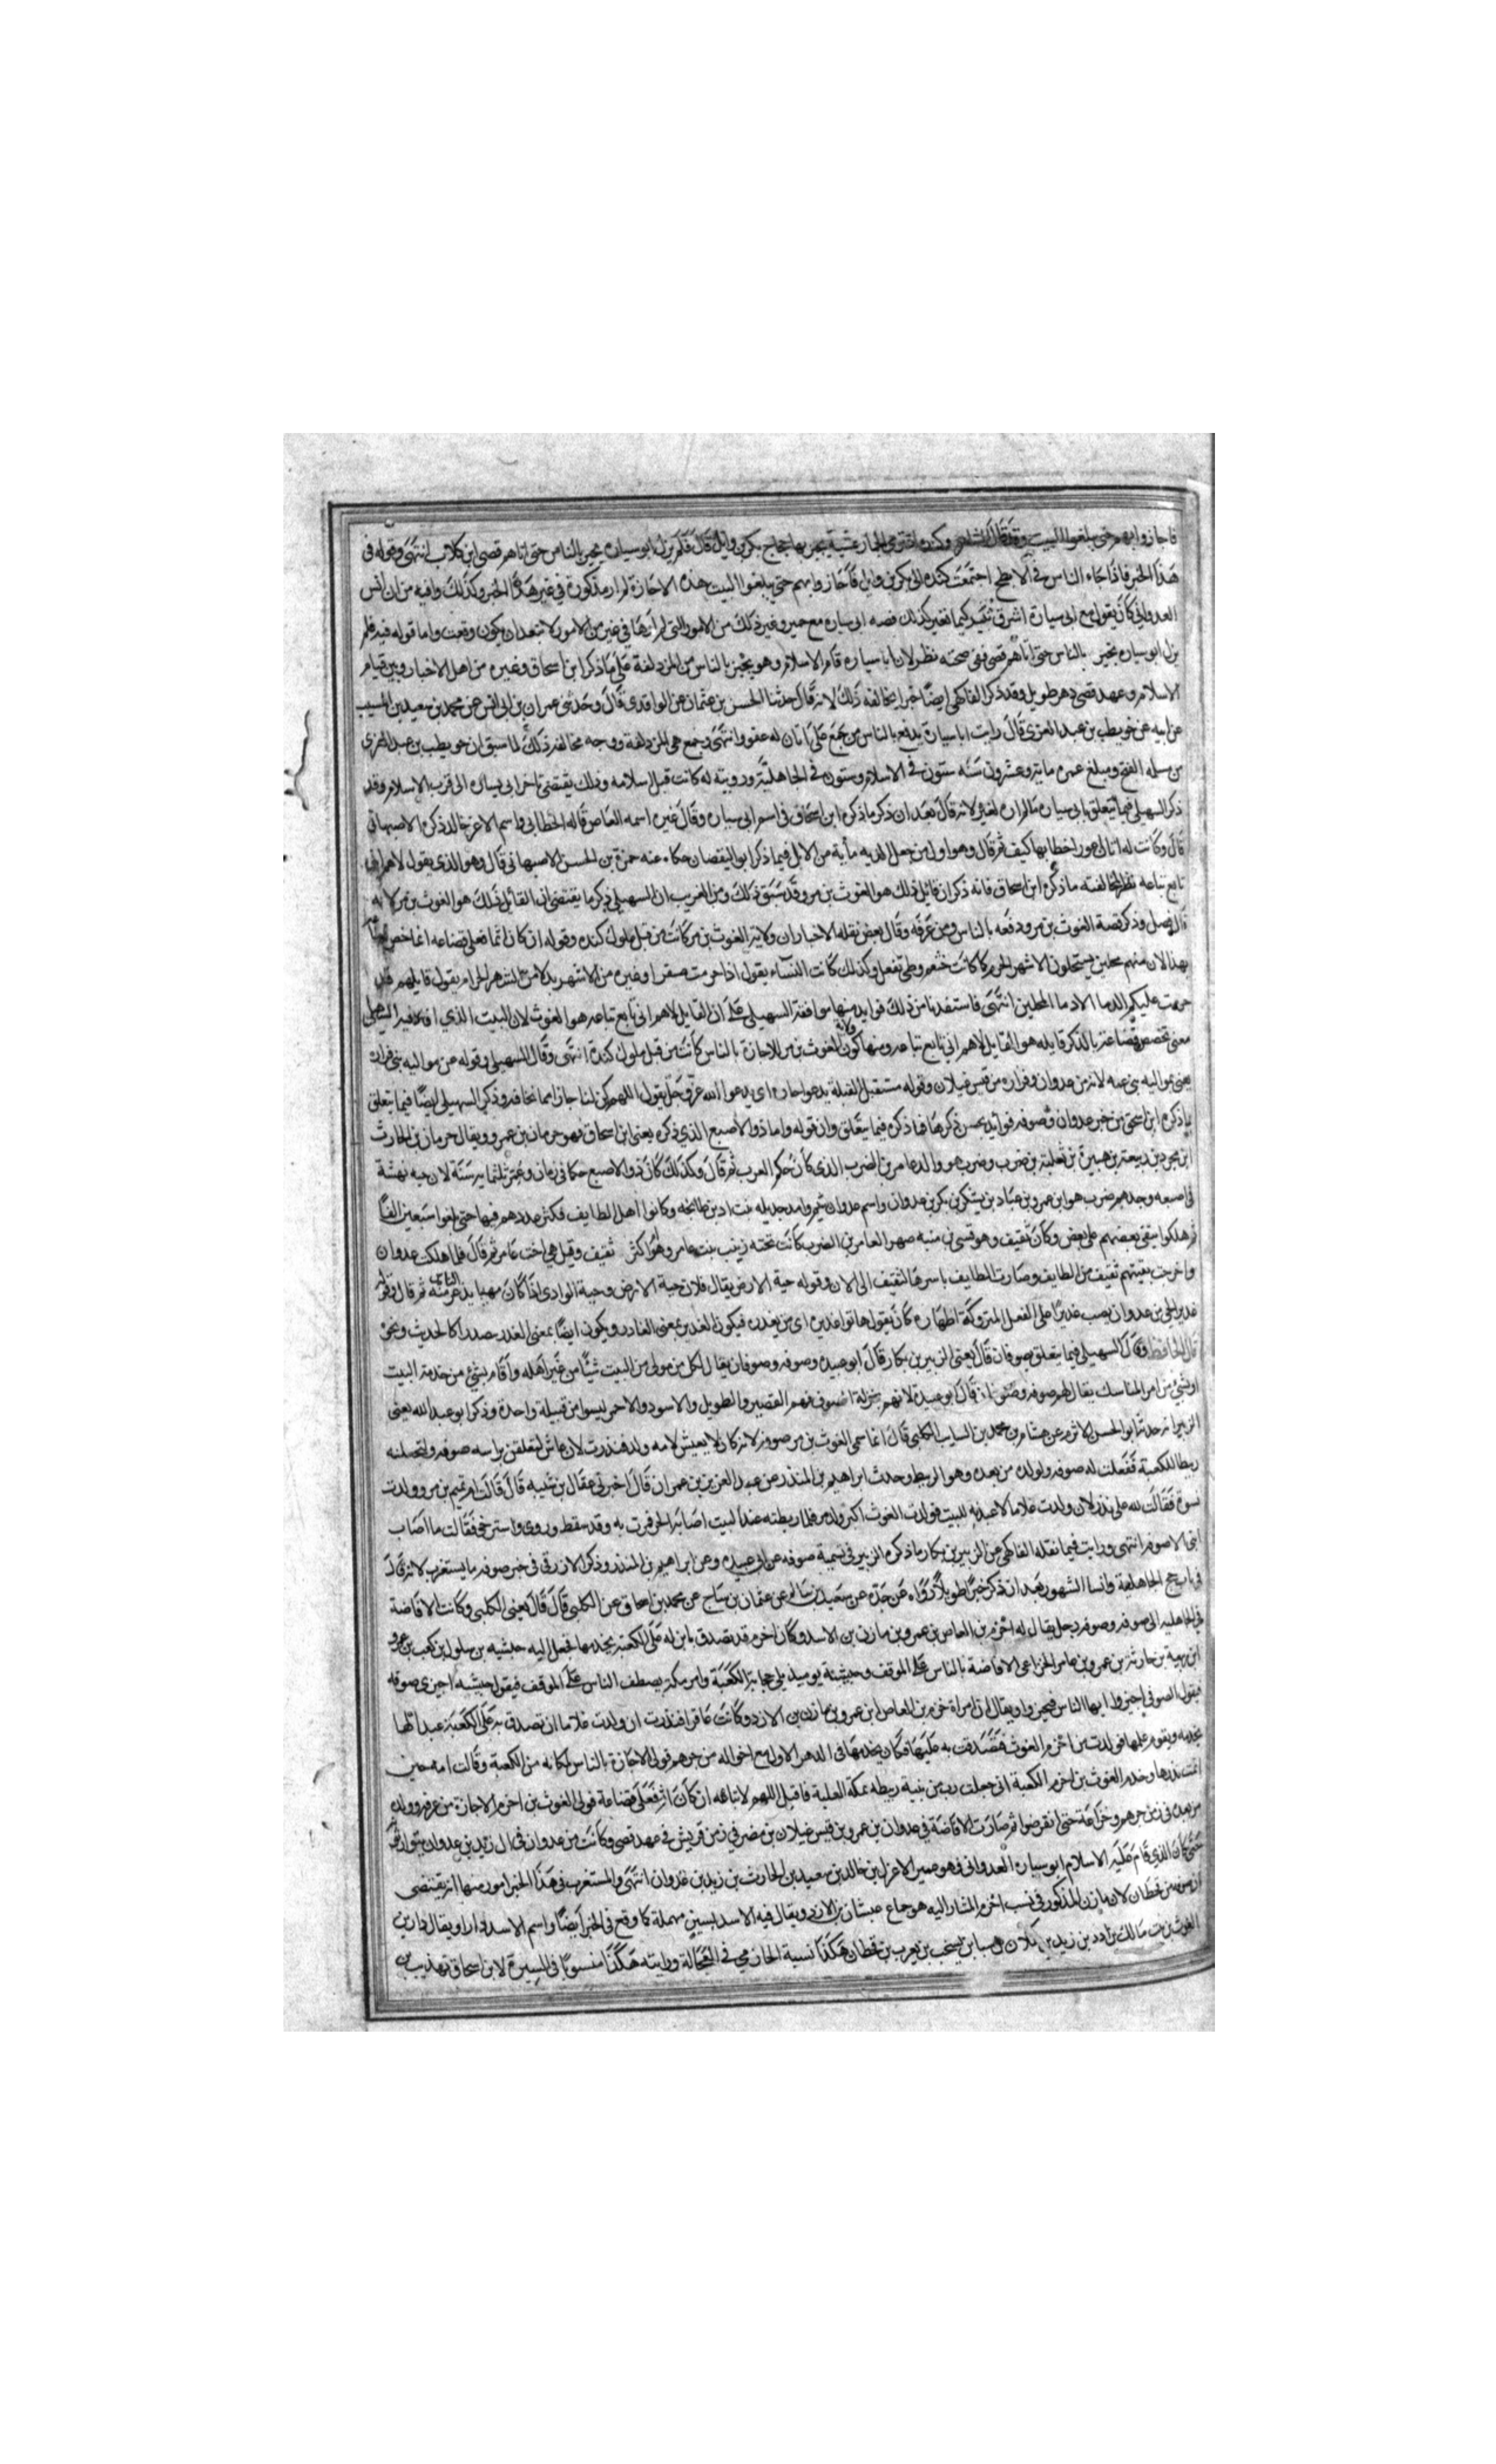 فاجازوا بهم حتى يبلغوا البيت وقد قال الشاعر وكندة اذ ترمي الجمار عشية يجيز بها حجاج بكر بن وايل قال فلم يزل ابو سيارة يجيز بالناس حتى اتاهم قصي ابن كلاب انتهى وقوله في
هذا الخبر فاذا جاء الناس في الابطح اجتمعت كندة الى بكر بن وايل فاجازوا بهم حتى يبلغوا البيت هذه الاجازة لم ار مذكورة في غير هذا الخبر وكذلك وافيه من ان انس
العدواني كان يقول مع ابى سيارة اشرق ثبير كيما نغير كذلك قصه ابى سياره مع حمير وغير ذلك من الامور التى لم ارها في غير من الامور لا تبعد ان يكون وقعت واما قوله فيه فلم
يزل ابو سياره يجيز بالناس حتى اتاهم قصي ففى صحته نظر لان ابا سياره قام الاسلام وهو يجيز بالناس من المزدلفة على ما ذكر ابن اسحاق وغيره من اهل الاخبار وبين قيام
الاسلام وعهد قصي دهر طويل وقد ذكر الفاكهى ايضا خبرا يخالفه ذلك لانه قال حدثنا الحسن بن عثمان عن الواقدى قال وحدثنى عمران بن ابى انس عن محمد بن سعيد بن المسيب
عن ابيه عن حويطب بن عبد العزى قال رايت ابا سيارة يدفع بالناس من جمع على اتان له عفو وانتهى وجمع هى المزدلفة ووجه مخالفة ذلك لما سبق ان حويطب بن عبد العزى
من مسلمة الفتح ومبلغ عمره ماية وعشرون سنه ستون في الاسلام وستون في الجاهلية ورويته له كانت قبل اسلامه وذلك يقتضى تاخر ابى سياره الى قرب الاسلام وقد
ذكر السهيلى فيما يتعلق بابى سياره ما لم اره لغيره لانه قال بعد ان ذكر ما ذكره ابن اسحاق فى اسم ابى سياره وقال غيره اسمه العاص قاله الخطابى واسم الاعزل خالد ذكره الاصبهانى
قال وكانت له اتان عوراء خطامها ليف ثم قال وهو اول من جعل الديه مأية من الابل فيما ذكر ابو اليقضان حكاه عنه حمزة بن الحسن الاصبهانى قال وهو الذى يقول لاهم انى
تابع تباعه نظر لمخالفته ما ذكره ابن اسحاق فانه ذكر ان قايل ذلك هو الغوث بن مر وقد سبق ذلك ومن الغريب ان السهيلى ذكر ما يقتضى ان القائل ذلك هو الغوث بن مر لانه
قال فصل وذكر قصة الغوث بن مر ودفعه بالناس ومن عرفه وقال بعض نقلة الاخبار ان ولاية الغوث بن مر كانت من قبل ملوك كندة وقوله ان كان اثما فعلى قضاعه انما خص قضاعه
بهذا لان منهم محلين يستحلون الاشهر الحرم كما كانت خثعم وطى تفعل وكذلك كانت النسآء يقول اذا حرمت صفرا وغيره من الاشهر بدلا من الشهر الحرام يقول قايلهم قد
حرمت عليكم الدما الا دما المحلين انتهى فاستفدنا من ذلك فوايد منها موافقة السهيلى على ان القايل لاهم انى تابع تباعه هو الغوث لان البيت الذي افاد فيه السهيلى
معنى تخصيص قضاعة بالذكر قايله هو القايل لاهم انى تابع تباعه ومنها كون ولاية الغوث بن مر للاجازة بالناس كانت من قبل ملوك كندة انتهى وقال السهيلى وقوله عن مواليه بنى فزاره
يعنى بمواليه بنى عمه لانه من عدوان وفزاره من قيس غيلان وقوله مستقبل القبلة يدعوا جاره اى يدعوا الله عز وجل يقول اللهم كن لنا جارا مما نخافه وذكر السهيلى ايضا فيما يتعلق
بما ذكره ابن اسحق من خبر عدوان وصوفه فوائد يحسن ذكرها فما ذكره فيما يتعلق وان قوله واما ذو الاصبع الذي ذكره يعنى ابن اسحاق فهو حرثان بن عمرو ويقال حرثان بن الحارث
ابن محرث بن ربيعة بن هبيرة بن ثعلبة بن ضرب وضرب هو والد عامر بن الضرب الذى كان حكم العرب ثم قال وكذلك كان ذو الاصبع حكما فى زمان وعمر ثلثماية سنة لان حيه نهشة
فى اصبعه وجدهم ضرب هو ابن عمرو بن عباد بن يشكر بن بكر بن عدوان واسم عدوان تيم وامه جديله بنت اد بن طابخه وكانوا اهل الطايف فكثر عددهم فيها حتى بلغوا سبعين الفا
ثم هلكوا ببغى بعضهم على بعض وكان ثقيف وهو قسى بن منبه صهر العامر بن الضرب كانت تحته زينب بنت عامر وهو اكثر ثقيف وقيل هى اخت عامر ثم قال فلما هلكت عدوان
واخرجت بقيتهم ثقيف من الطايف وصارت الطايف باسرها لثقيف الى الان وقوله حية الارض يقال فلان حية الارض وحية الوادى اذا كان مهيبا يذعر منه الناس ثم قال وقوله
غدير الحى بن عدوان نصب غديرا على الفعل المتروكة اظهاره كان يقول هاتوا غديره اى من يغدره فيكون الغدير بمعنى الغادر ويكون ايضا بمعنى الغدر مصدرا كالحديث ونحوه
قال الحافظ وقال السهيلى فيما يتعلق بصوفان قال يعنى الزبير بن بكار قال ابو عبيده وصوفه وصوفان يقال لكل من ولى من البيت شيئا من غير اهله واقام بشئ من خدمة البيت
او بشئ من امر المناسك يقال لهم صوفه وصوفان قال ابو عبيدة لانهم بمنزلة الصوف فهم القصير والطويل والاسود والاحمر ليسوا من قبيلة واحدة وذكر ابو عبد الله يعنى
الزبير انه حدثه ابو الحسن الاثرم عن هشام بن محمد بن السايب الكلبى قال انما سمى الغوث بن مر صوفه لانه كان لا يعيش لامه ولد فنذرت لان عاش لتعلقن براسه صوفه ولتجعلنه
ربيطا للكعبة ففعلت له صوفه ولولده من بعده وهو الربيط وحدث ابراهيم بن المنذر عن عبد العزيز بن عمران قال اخبرنى عقال بن شيبه قال قالت ام تميم بن مر وولدت
نسوة فقالت لله على نذر لان ولدت غلاما لاعبدنه للبيت فولدت الغوث اكبر ولد مر فلما ربطته عند البيت اصابه الحر فمرت به وقد سقط وروى واسترخى فقالت ما اصاب
ابنى الا صوفه انتهى ورايت فيما نقله الفاكهى عن الزبير بن بكار ما ذكره الزبير فى تسمية صوفه عن ابى عبيده وعن ابراهيم بن المنذر وذكر الازرقى فى خبر صوفه ما يستغرب لانه قال
فى باب حج الجاهلية وانسا الشهور بعد ان ذكر خبرا طويلا رواه عن جده عن سعيد بن سالم عن عثمان بن ساج عن محمد بن اسحاق عن الكلبى قال قال يعنى الكلبى وكانت الافاضة
فى الجاهلية الى صوفه وصوفه رجل يقال له اخزم بن العاص بن عمرو بن مازن بن الاسد وكان اخزم قد تصدق بابن له على الكعبة يخدمها فجعل اليه حبشيه بن سلول بن كعب بن عمرو
ابن ربيعة بن حارثة بن عمرو بن عامر الخزاعى الافاضة بالناس على الموقف وحبشية يوميذ يلى حجابة الكعبة وامر مكة يصطف الناس على الموقف فيقول حبشيه اجيزى صوفه
فيقول الصوفى اجيزوا ايها الناس فيجيزوا ويقال ان امراة اخزم بن العاص ابن عمرو بن مازن بن الازد وكانت عاقرا فنذرت ان ولدت غلاما ان تصدق به على الكعبة عبدا لها
يخدمه ويقوم عليها فولدت من اخزم الغوث فتصدقت به عليها فكان يخدمها فى الدهر الاول مع اخواله من جرهم فولى الاجازة بالناس لمكانه من الكعبة وقالت امه حين
اتمت نذرها وخدم الغوث بن اخزم الكعبة انى جعلت رب من بنية ربيطه بمكة العلية فاقبل اللهم لاتباعه ان كان اثم فعلى قضاعة فولى الغوث بن اخزم الاجازة من عرفه وولده
من بعده فى زمن جرهم وخزاعة حتى انقرضوا ثم صارت الافاضة فى عدوان بن عمرو بن قيس غيلان بن مضر في زمن قريش في عهد قصي وكانت من عدوان فى ال زيد بن عدوان يتوارثونه
حتى كان الذى قام عليه الاسلام ابو سيارة العدوانى فهو عمير الاعزل بن خالد بن سعيد بن الحارث بن زيد بن عدوان انتهى والمستغرب فى هذا الخبر امور منها انه يقتضى
ان صوفه من قحطان لان مازن المذكور فى نسب اخزم المشار اليه هو جاع غسان بن الازد ويقال فيه الاسد بسين مهملة كما وقع فى الخبر ايضا واسم الاسد دارا ويقال دار بن
الغوث بن نبت مالك بن ادد بن زيد بن كهلان بن سبا بن يشجب بن يعرب بن قحطان هكذا نسبة الحازمى فى العجالة ورايته هكذا منسوبا فى السيرة لابن اسحاق تهذيب بن